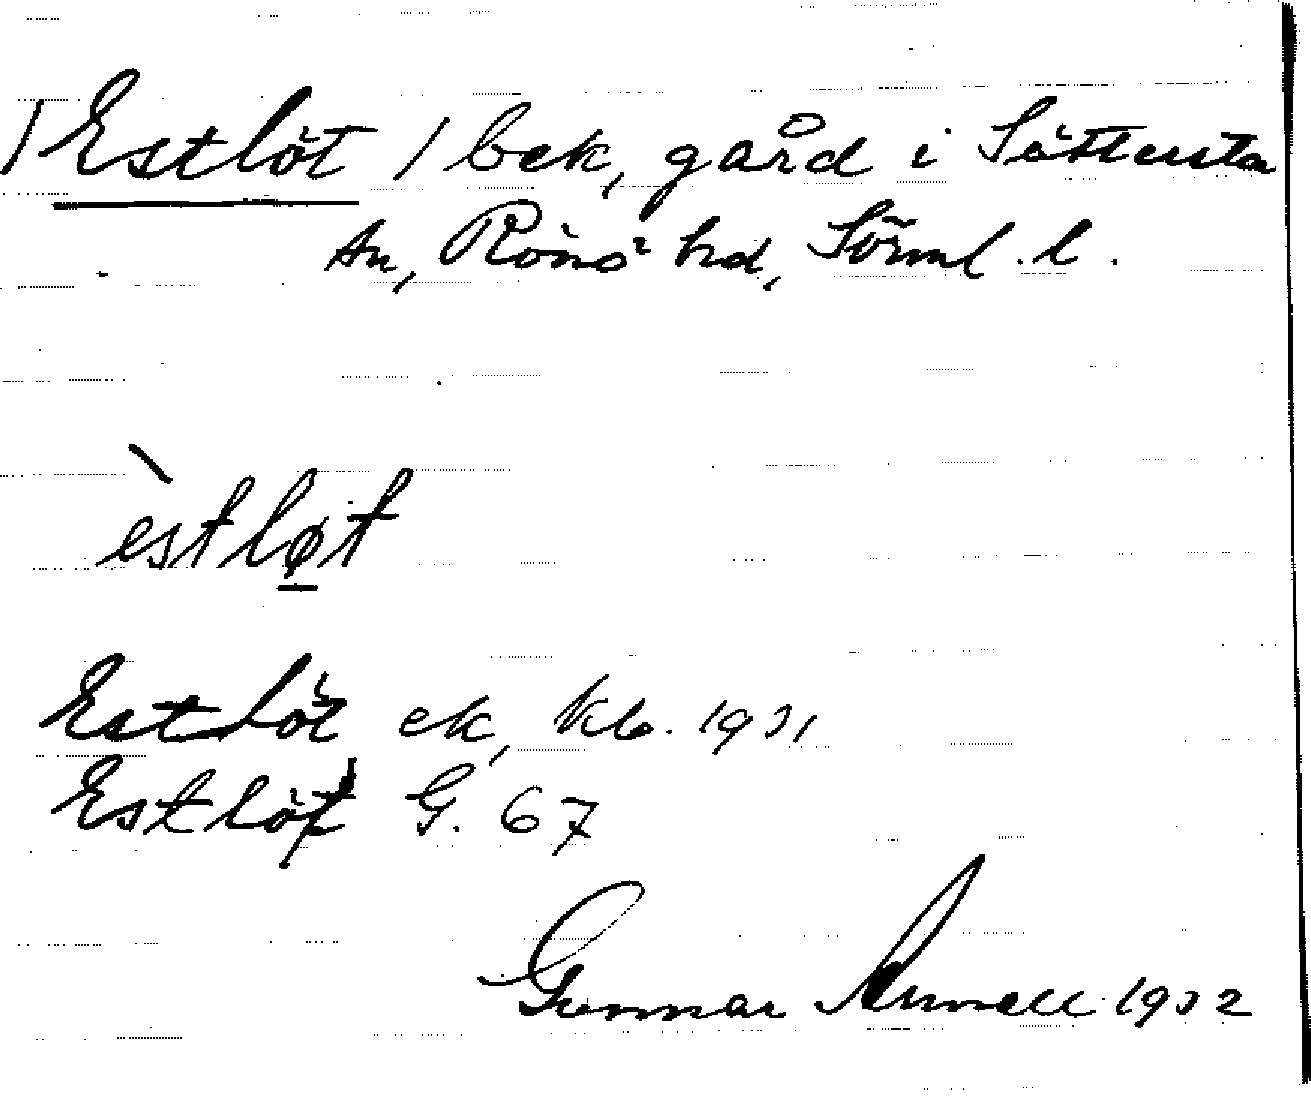 /Estlöt / bek, gård i Sättersta
sn, Rönö hd, Sörml. l.
èstløt
Estlöt ek, kb. 1931
Estlöt G. 67
Gunnar Arnell 1932